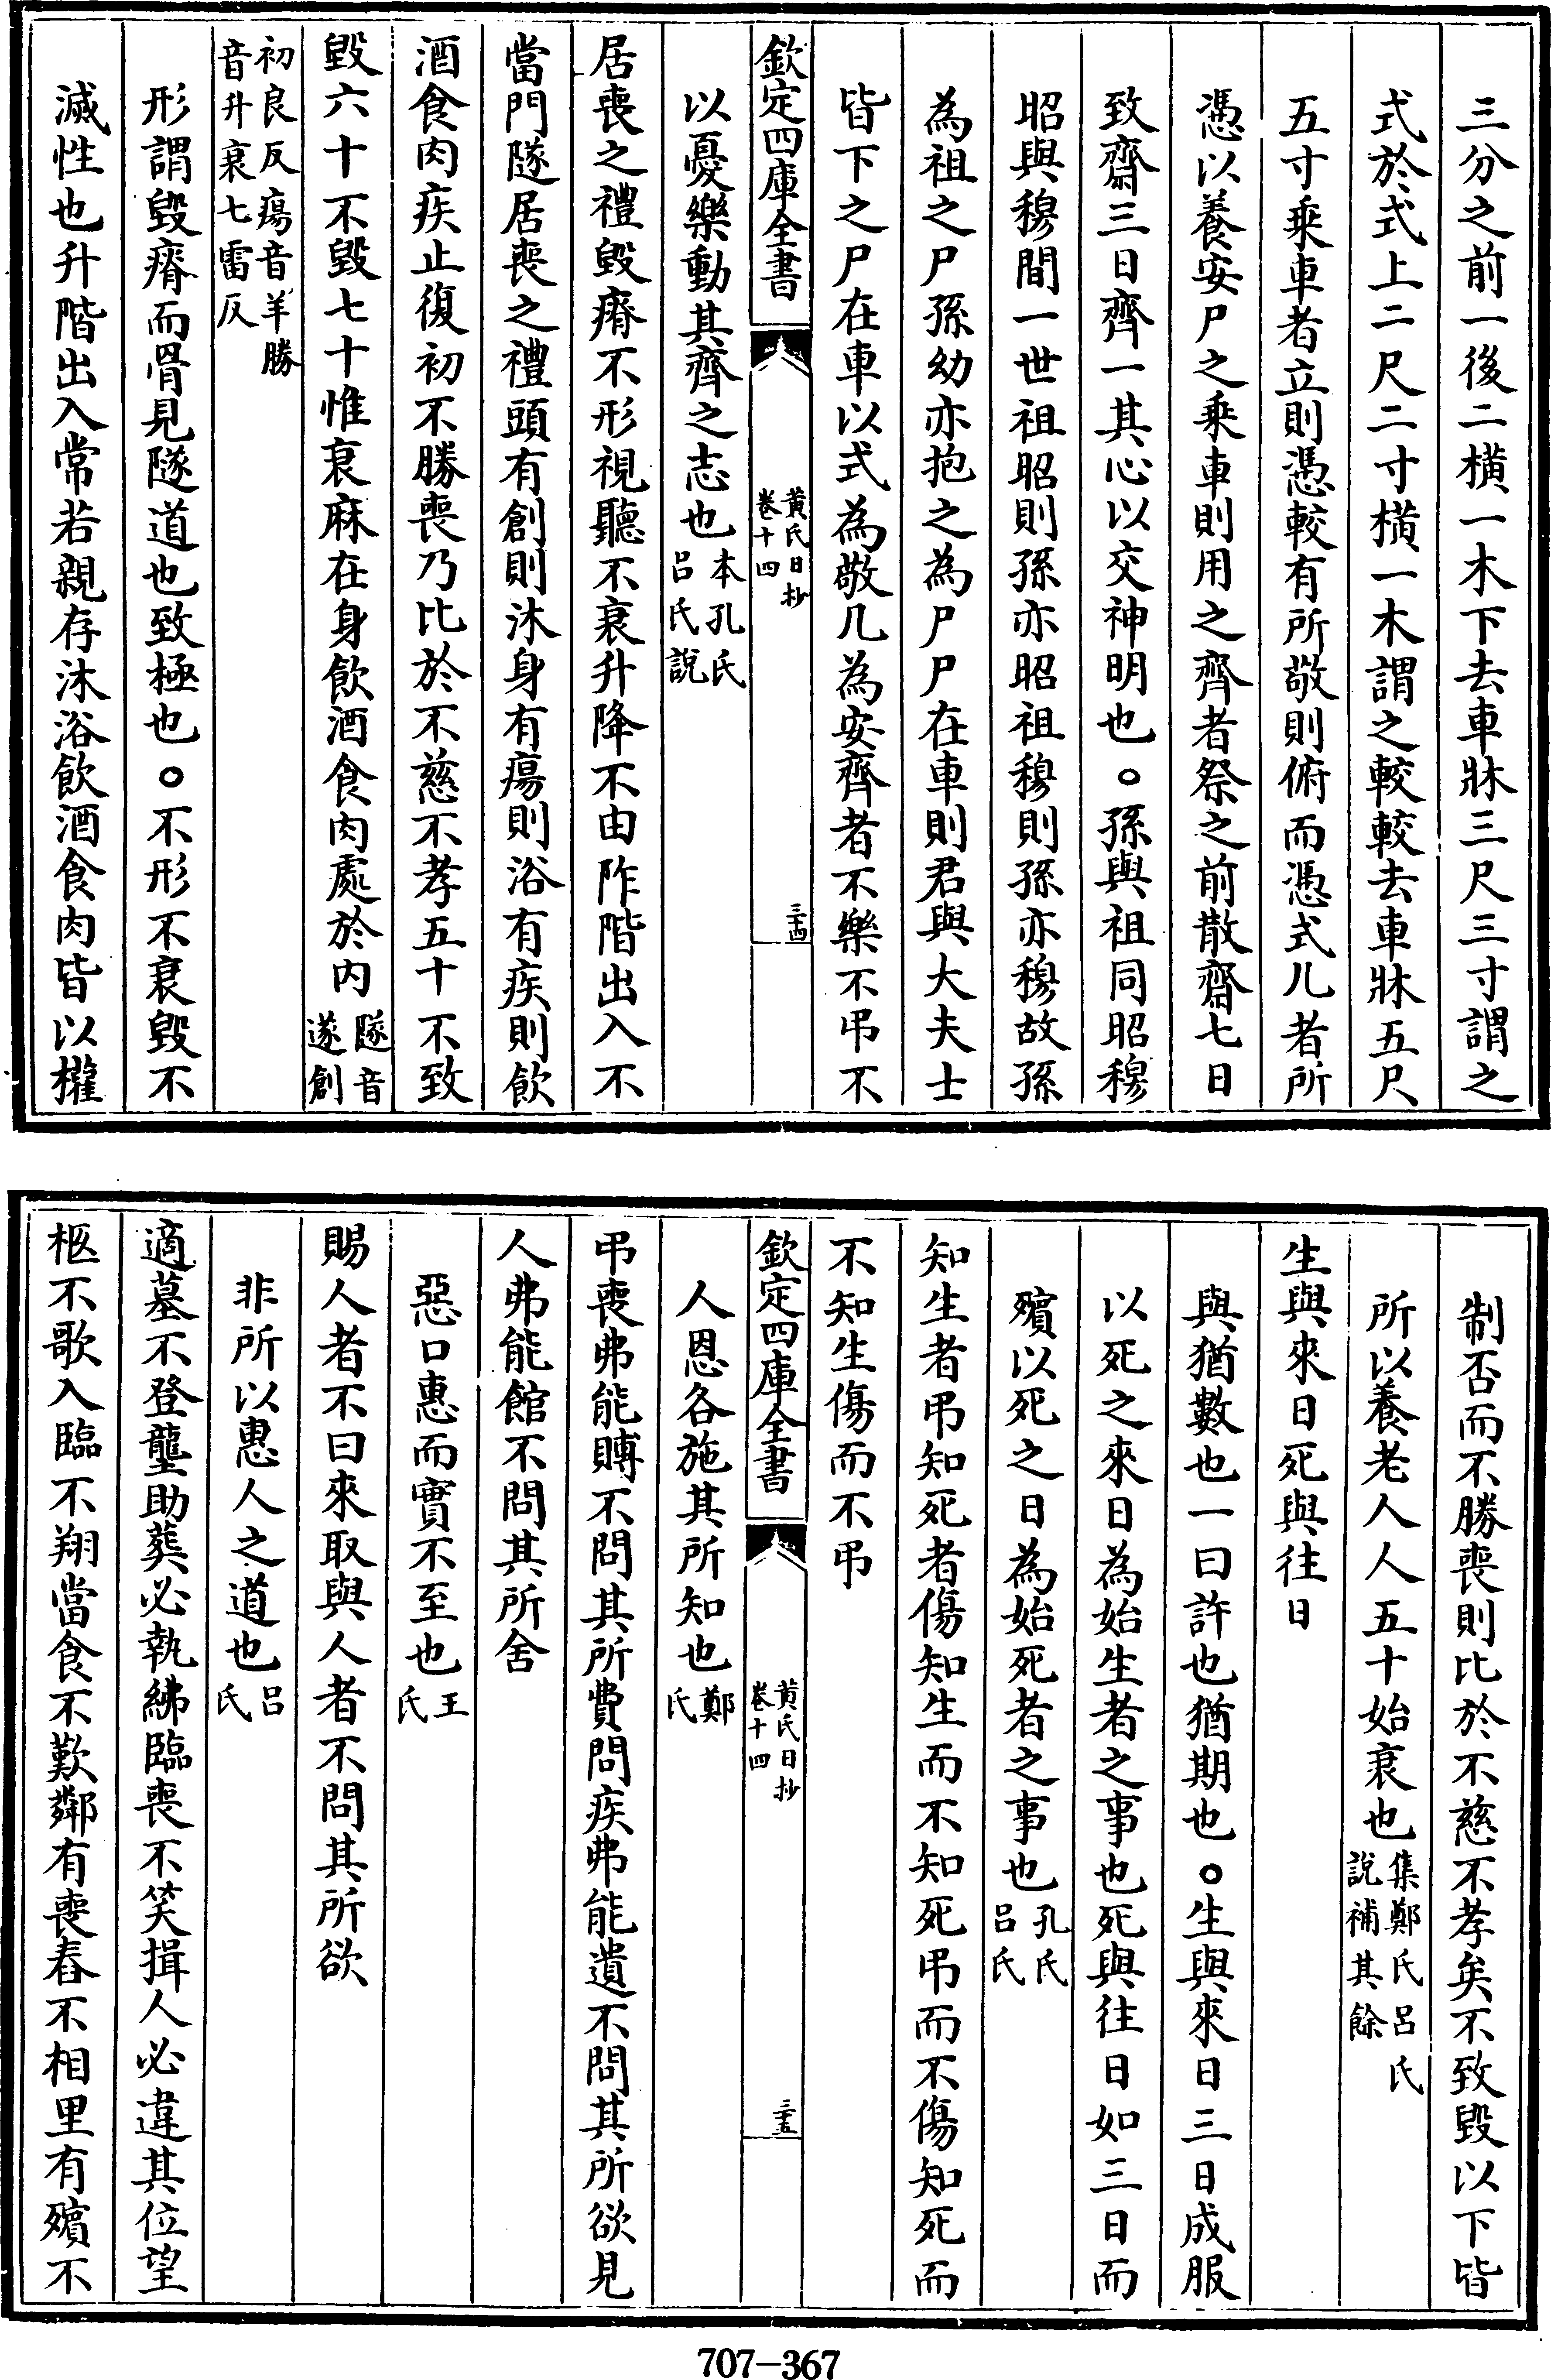 三分之前一後二橫一木下去車牀三尺三寸謂之
式於式上二尺二寸橫一木謂之較較去車牀五尺
五寸乘車者立則憑較有所敬則俯而憑式几者所
憑以養安尸之乘車則用之齊者祭之前散齋七日
致齋三日齊一其心以交神明也○孫與祖同昭穆
昭與穆間一世祖昭則孫亦昭祖穆則孫亦穆故孫
為祖之尸孫幼亦抱之為尸尸在車則君與大夫士
皆下之尸在車以式為敬几為安齊者不樂不弔不
欽定四庫全書
黃氏日抄
卷十四
三十四
以憂樂動其齊之志也本孔氏
呂氏說
居喪之禮毀瘠不形視聽不衰升降不由阼階出入不
當門隧居喪之禮頭有創則沐身有瘍則浴有疾則飲
酒食肉疾止復初不勝喪乃比於不慈不孝五十不致
毀六十不毀七十惟衰麻在身飲酒食肉處於内隧音
遂創
初良反瘍音羊勝
音升衰七雷反
形謂毀瘠而骨見隧道也致極也○不形不衰毀不
滅性也升階出入常若親存沐浴飲酒食肉皆以權
制否而不勝喪則比於不慈不孝矣不致毀以下皆
所以養老人人五十始衰也集鄭氏呂氏
說補其餘
生與來日死與往日
與猶數也一曰許也猶期也○生與來日三日成服
以死之來日為始生者之事也死與往日如三日而
殯以死之日為始死者之事也孔氏
呂氏
知生者弔知死者傷知生而不知死弔而不傷知死而
不知生傷而不弔
欽定四庫全書
黃氏日抄
卷十四
三十五
人恩各施其所知也鄭
氏
弔喪弗能賻不問其所費問疾弗能遺不問其所欲見
人弗能館不問其所舍
惡口惠而實不至也王
氏
賜人者不曰來取與人者不問其所欲
非所以惠人之道也呂
氏
適墓不登壟助葬必執紼臨喪不笑揖人必違其位望
柩不歌入臨不翔當食不歎鄰有喪舂不相里有殯不
707-367